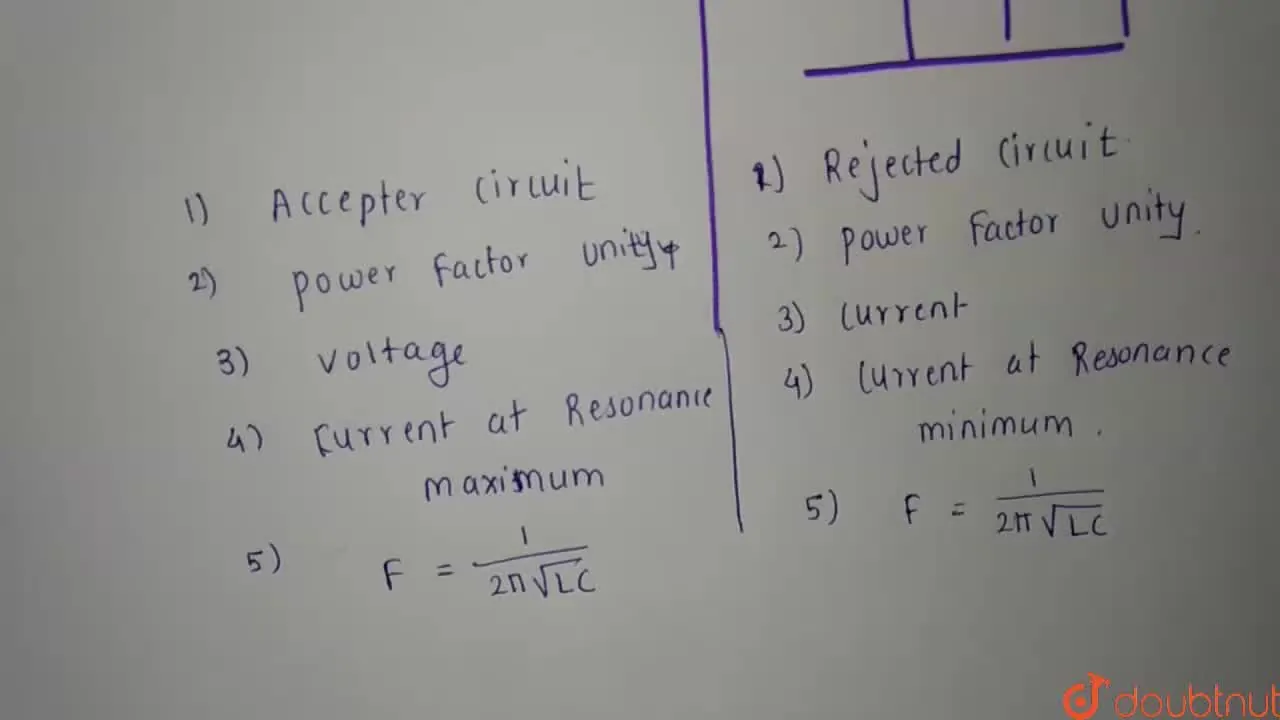 1) Accepter Circuit
2) power factor unity
3) voltage
4) Current at Resonance
maximum
5) F = 1/2π√LC
1) Rejected Circuit.
2) power factor unity.
3) Current
4) Current at Resonance
minimum.
5) F = 1/2π√LC
doubtnut